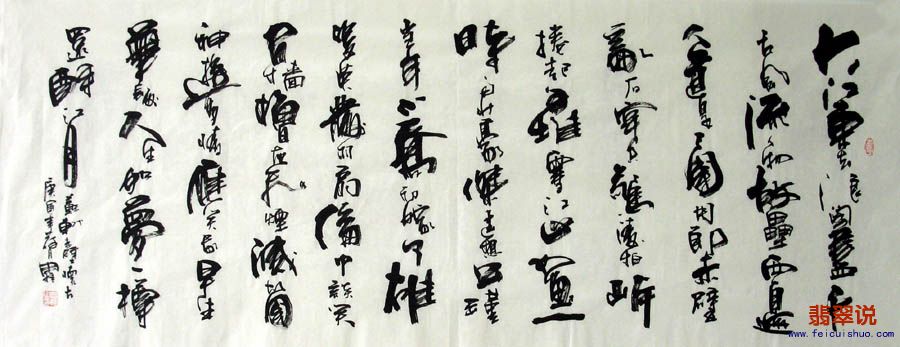 大江東去浪淘盡千
古風流人物故壘西邊
人道是三國周郎赤壁
亂石穿空驚濤拍岸
捲起千堆雪江山如畫
時多少豪傑遙想公瑾
當年小喬初嫁了雄
姿英發羽扇綸巾談笑
間檣櫓灰飛煙滅故國
神遊多情應笑我早生
華髮人生如夢一樽
還酹江月
懷古
庚寅年
翡翠说
www.feicuishuo.com